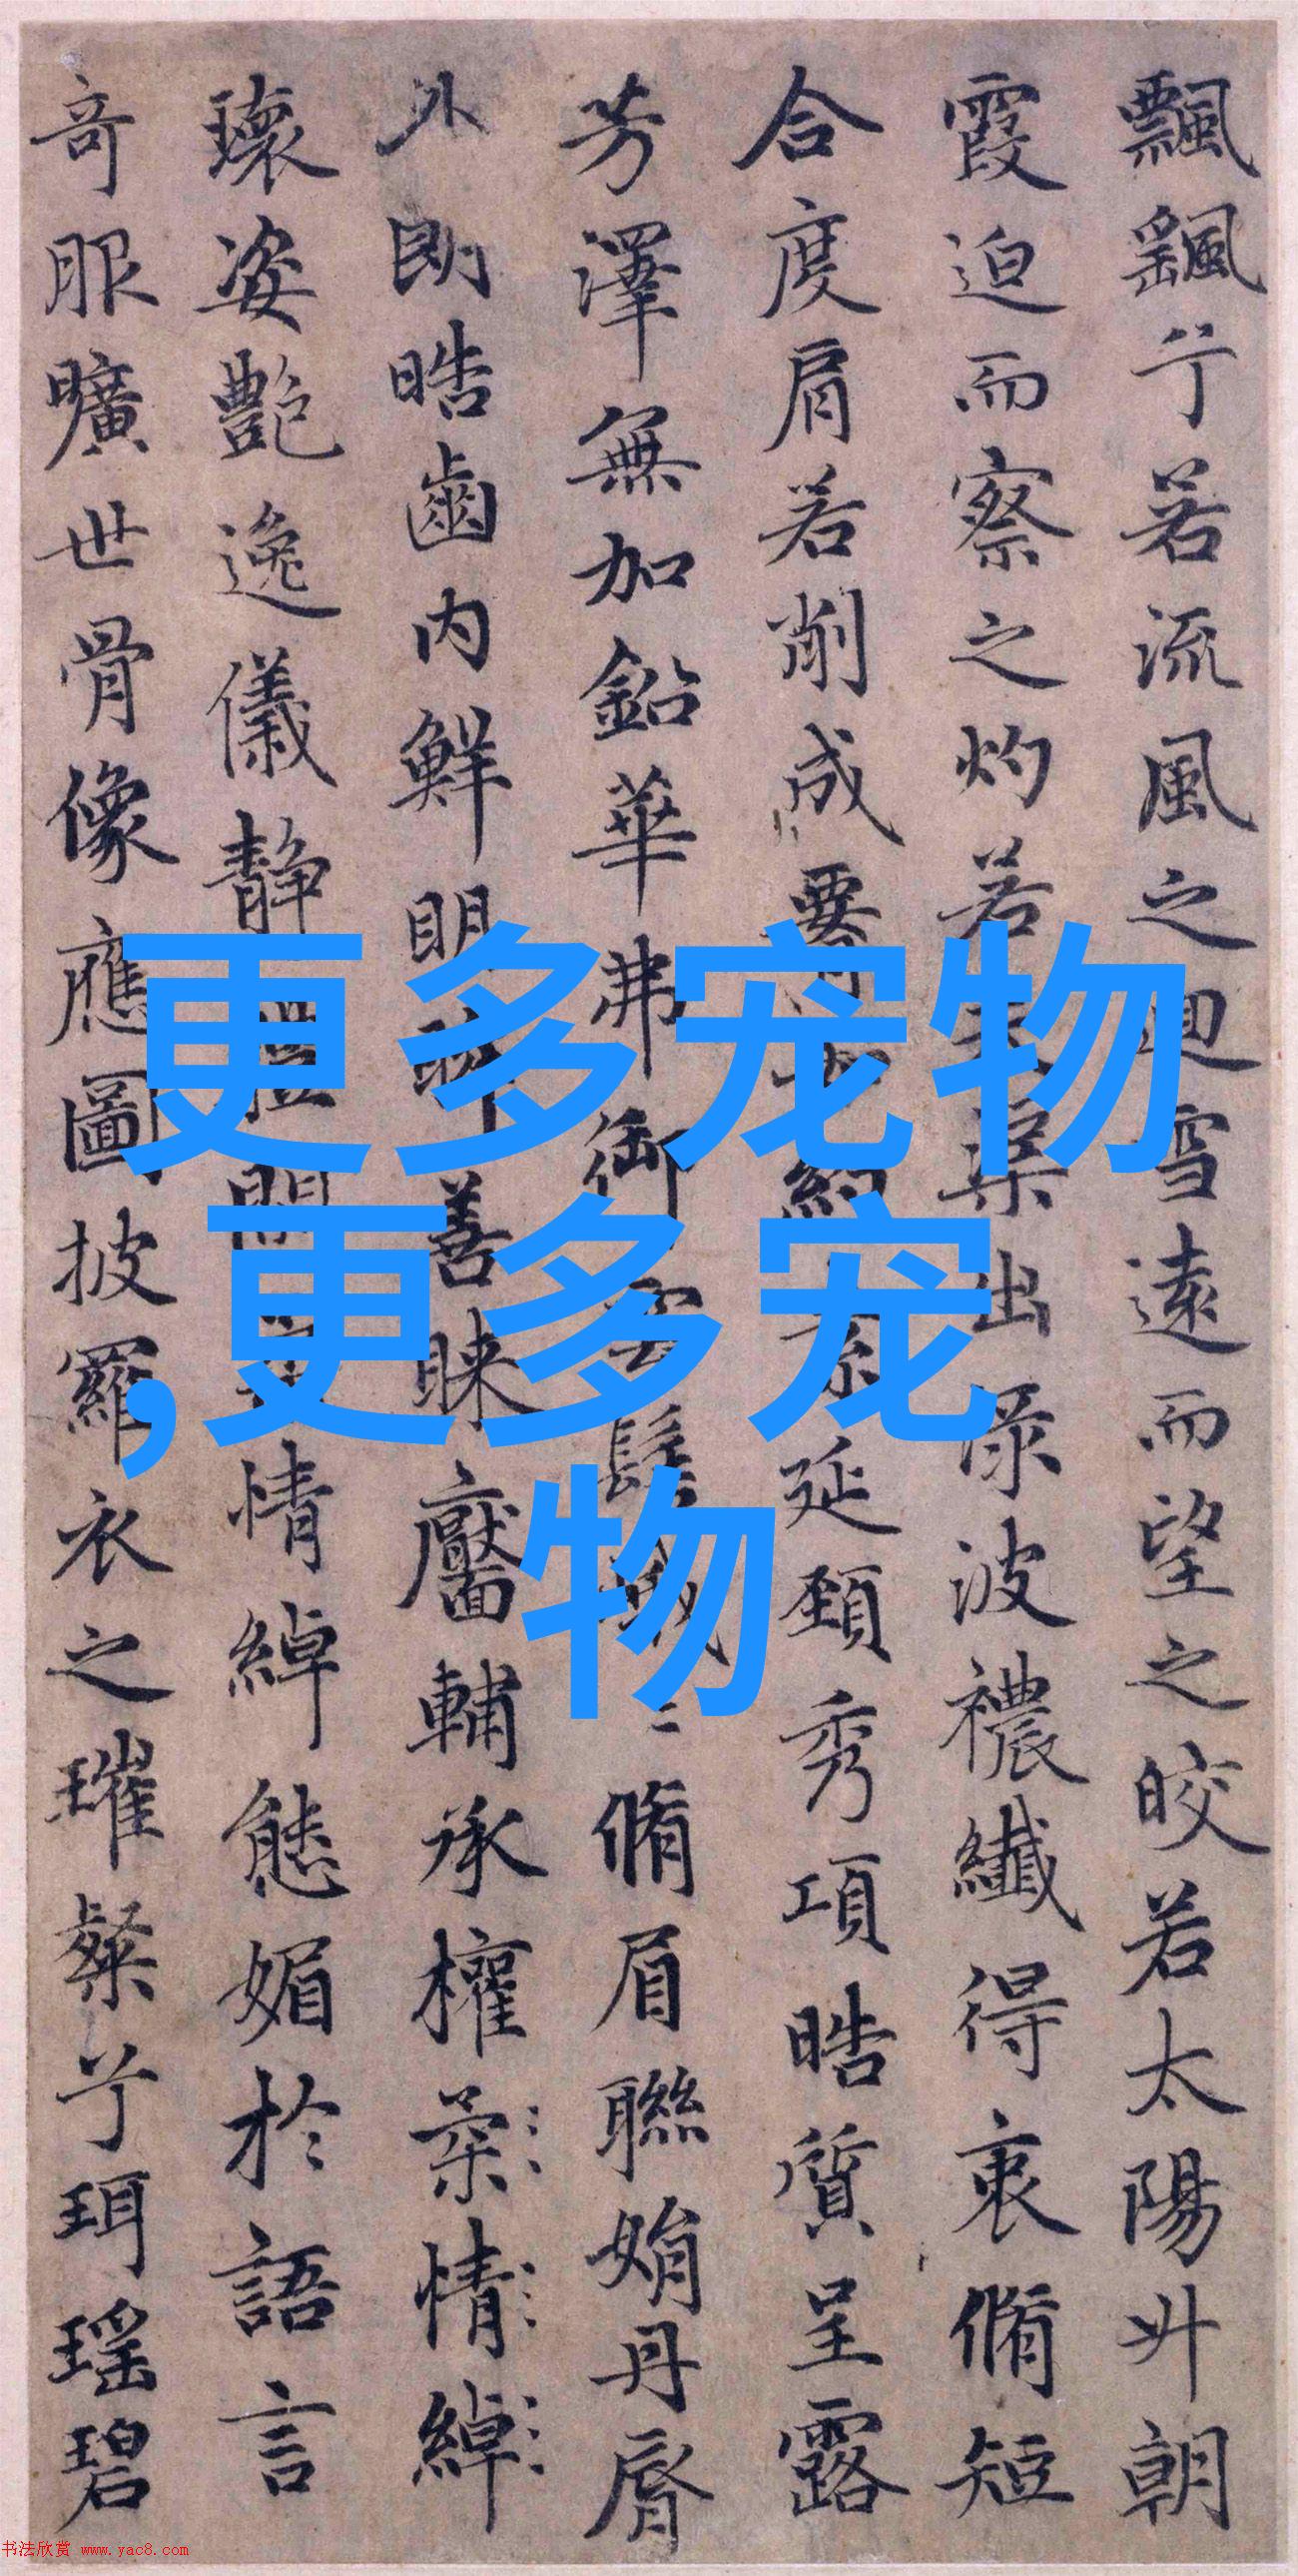 飄飖兮若流風之迴雪遠而望之皎若太陽升朝
霞迫而察之灼若芙蕖出淥波禯纖得衷脩短
合度肩若削成要約素延頸秀項皓質呈露
芳澤無加鉛華弗御雲髻峨〻脩眉聯娟丹脣
外朗皓齒内鮮明眸善睞靨輔承權柔情綽
瓌姿艷逸儀靜體閑柔情綽態媚於語言
奇服曠世骨像應圖披羅衣之璀粲兮珥瑶碧
更多宠物
,更多宠
物
书法欣赏 www.yac8.com